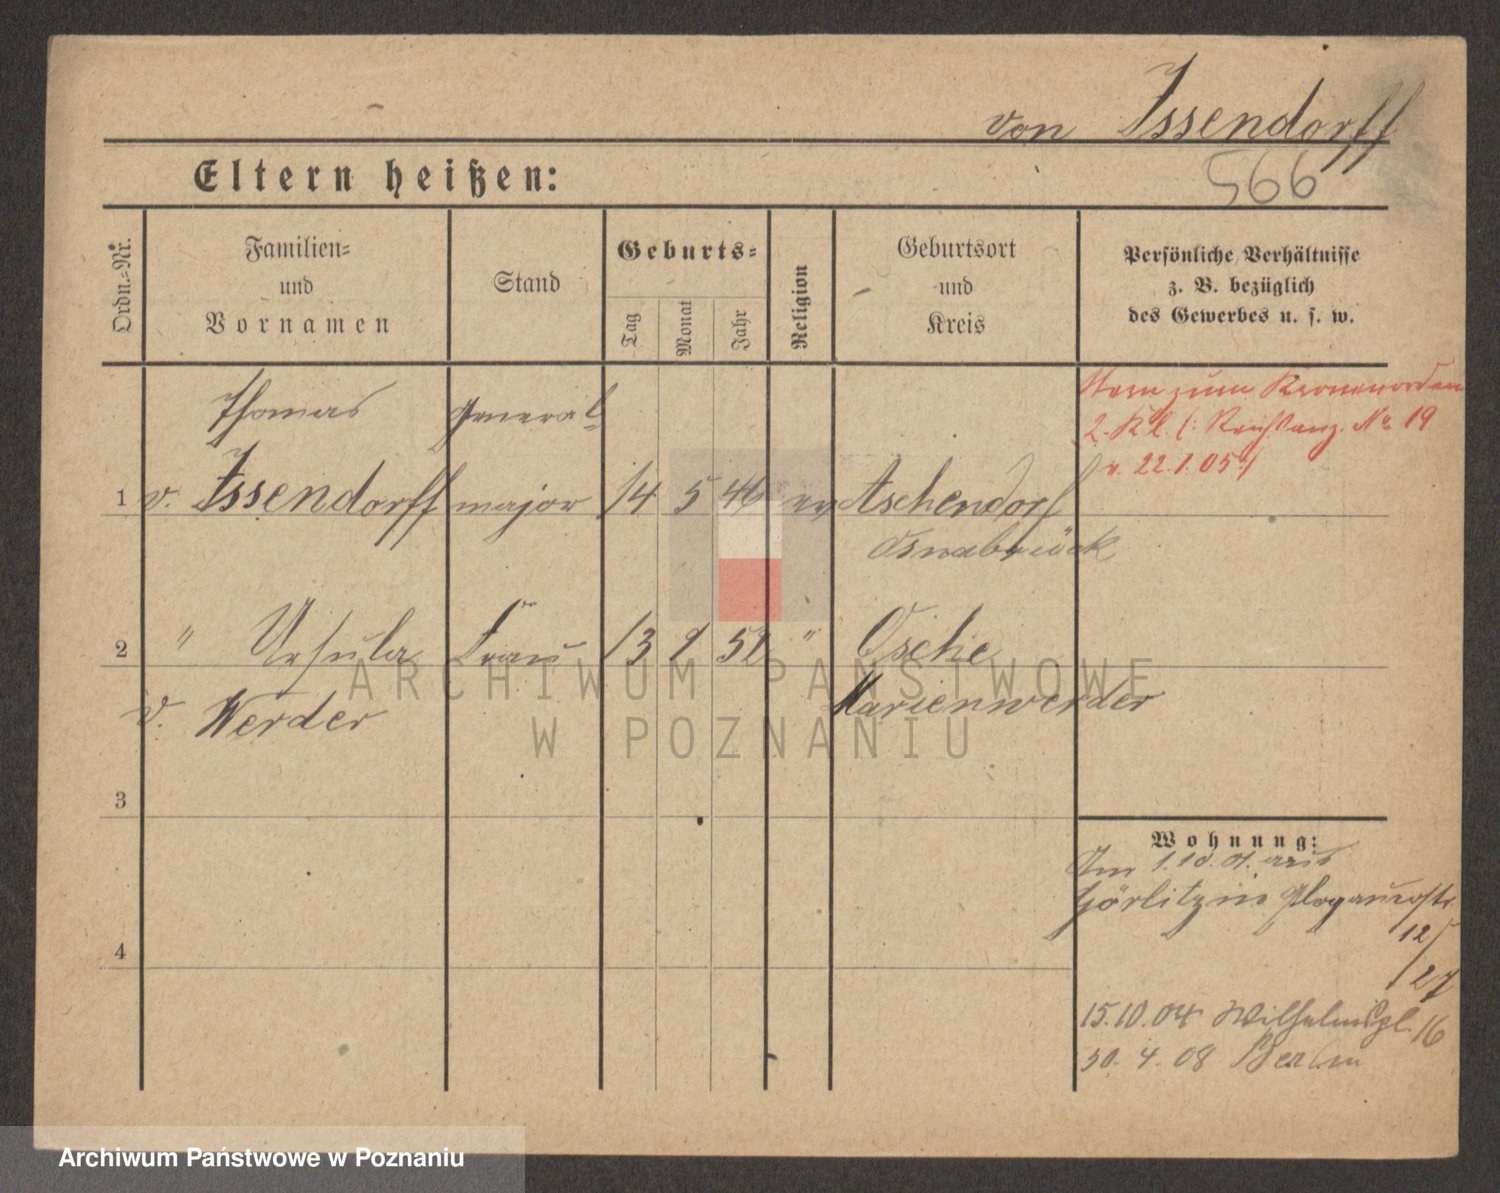 von Issendorff
566
Eltern heißen:
Ordn.-Nr.
Familien-
und
Vornamen
Stand
Geburts-
Tag
Monat
Jahr
Religion
Geburtsort
und
Kreis
Persönliche Verhältnisse
z. B. bezüglich
des Gewerbes u. s. w.
Thomas General
1 v. Issendorff major 14 5 46 ev Aschendorf
Osnabrück
Stern zum Kronenorden
2. Kl. (: Reichsanz. No 19
v. 22.1.05 :)
2 " Ursula Frau 13 9 52 " Osche
v. Werder Marienwerder
3
4
Wohnung:
Am 1.10.01. aus
Görlitz in Glogauerstr.
12/
27
15.10.04 Wilhelmspl. 16
30. 4. 08 Berlin
ARCHIWUM PAŃSTWOWE
W POZNANIU
Archiwum Państwowe w Poznaniu